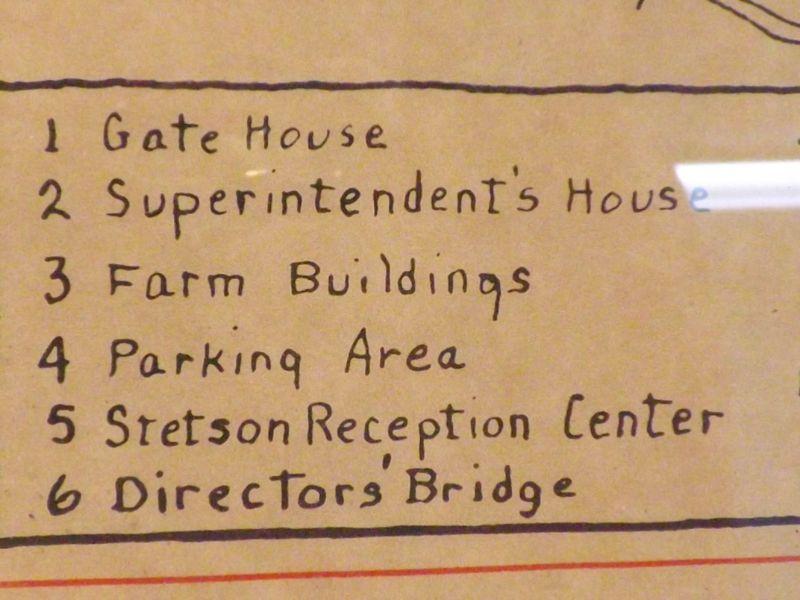 1 Gate House
2 Superintendent's House
3 Farm Buildings
4 Parking Area
5 Stetson Reception Center
6 Directors' Bridge